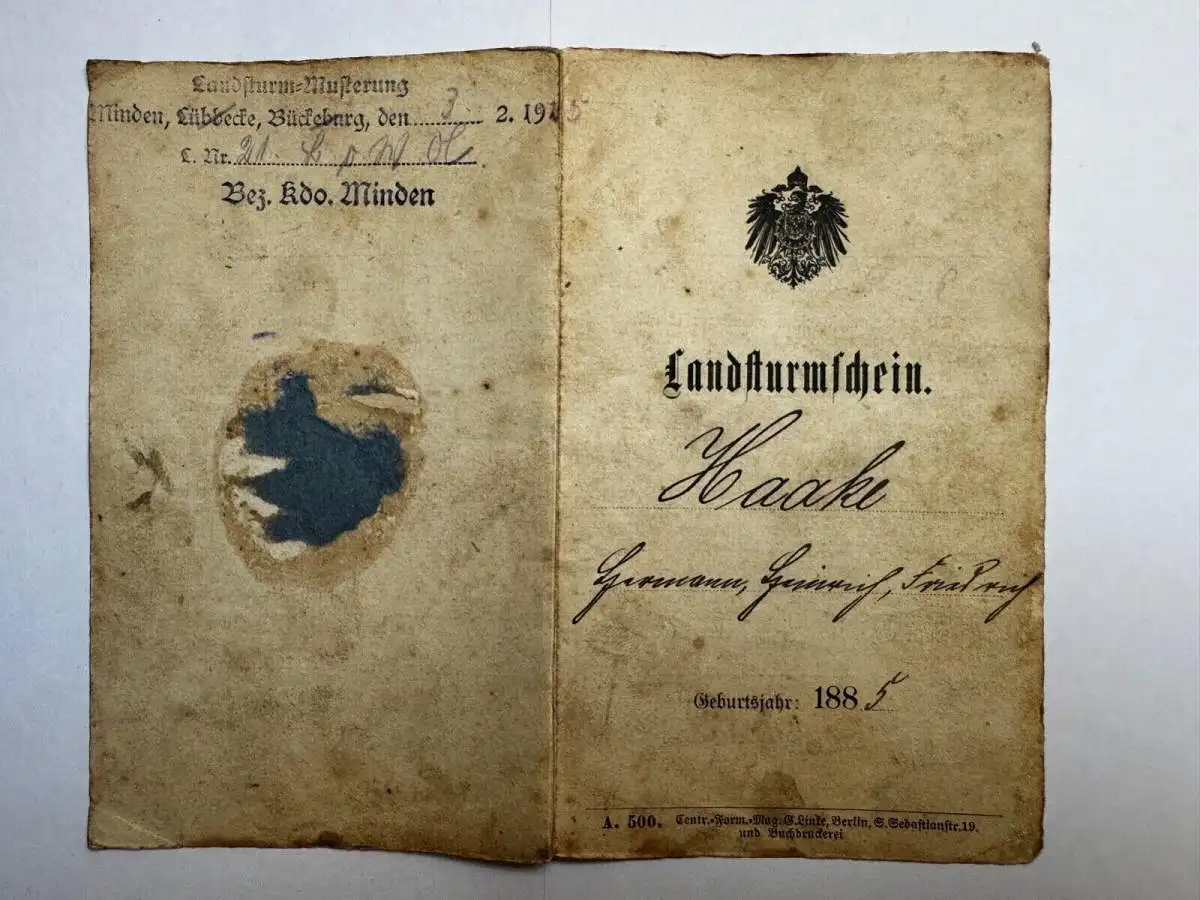 Landsturm-Musterung
Minden, Lübbecke, Bückeburg, den 3. 2. 1915
L. Nr. 21.
Bez. Kdo. Minden
Landsturmschein.
Haake
Hermann, Heinrich, Friedrich
Geburtsjahr: 1885
A. 500. Centr.-Form.-Mag. G. Linke, Berlin, S. Sebastianstr. 19.
und Buchdruckerei